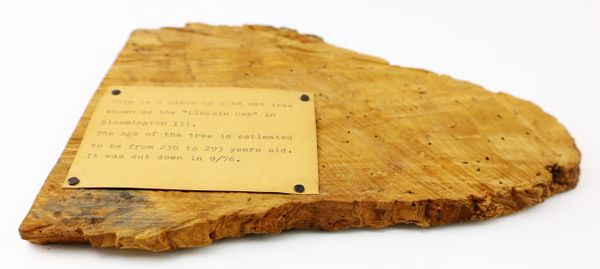 This is a piece of the oak tree
known as the "Lincoln oak" in
Bloomington Ill.
The age of the tree is estimated
to be from 250 to 293 years old.
It was cut down in 9/76.